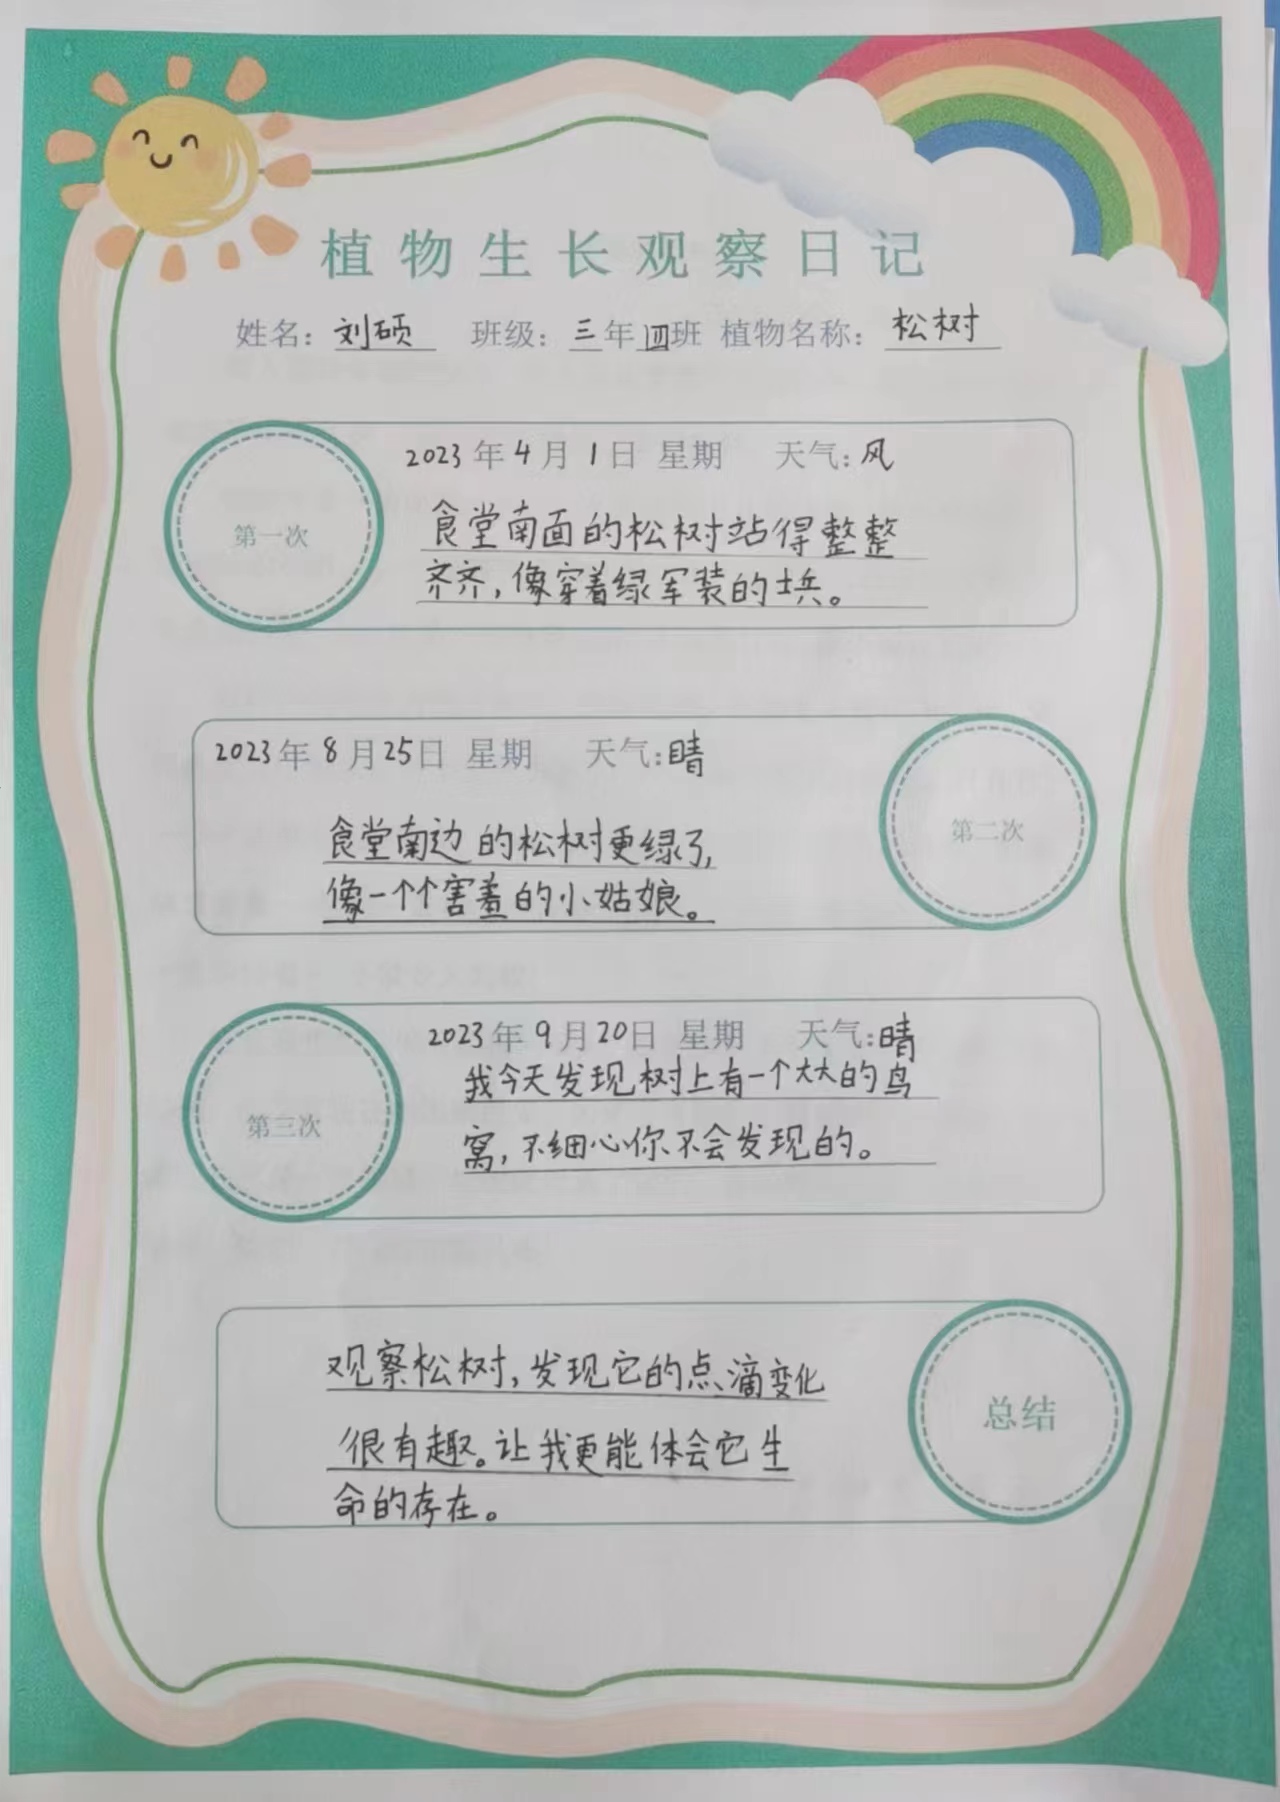 植物生长观察日记
姓名：刘硕 班级：三年四班 植物名称：松树
2023年4月1日 星期 天气：风
第一次
食堂南面的松树站得整整
齐齐，像穿着绿军装的士兵。
2023年8月25日 星期 天气：晴
第二次
食堂南边的松树更绿了，
像一个个害羞的小姑娘。
2023年9月20日 星期 天气：晴
第三次
我今天发现树上有一个大大的鸟
窝，不细心你不会发现的。
总结
观察松树，发现它的点滴变化
很有趣。让我更能体会它生
命的存在。